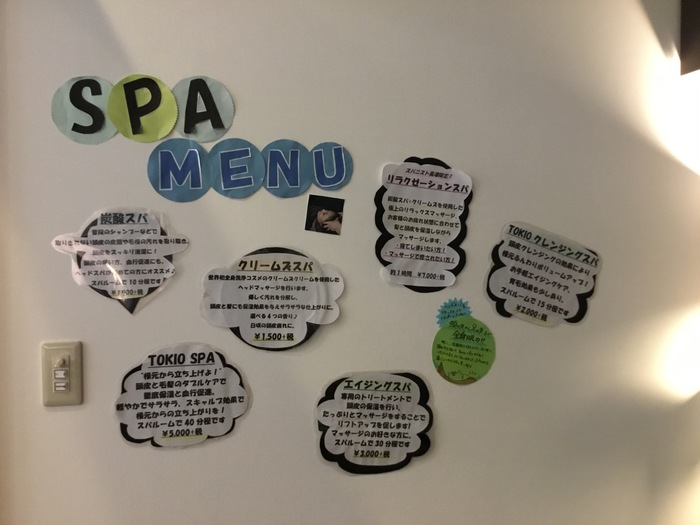 SPA
MENU
炭酸スパ
普段のシャンプーなどで
取りきれない頭皮の皮脂や毛穴の汚れを取り除き、
頭皮をスッキリ清潔に！
血行促進にも。
スパルームで10分程です
クリームスパ
世界初全身洗浄コスメのクリームズクリームを使用した
ヘッドマッサージを行います。
優しく汚れを分解し、
頭皮と髪にも保湿効果を与えサラサラな仕上がりに。
選べる4つの香り♪
日頃の頭皮疲れに。
¥1,500+税
スパニスト長澤限定？
リラクゼーションスパ
炭酸スパ+クリームズを使用した
極上のリラックスマッサージ。
お客様のお疲れ状態に合わせて
髪と頭皮を保湿しながら
マッサージします。
・寝てしまいたい方！
・マッサージで癒されたい方！
約1時間 ¥7,000+税
TOKIO クレンジングスパ
頭皮クレンジングの効果により
根元ふんわりボリュームアップ！
お手軽エイジングケア。
育毛効果も少しあり。
スパルームで15分程です
¥2,000+税
TOKIO SPA
"根元から立ち上げよ！"
頭皮と毛髪のダブルケアで
徹底保湿と血行促進。
軽やかでサラサラ、スキャルプ効果で
根元からの立ち上がりを！
スパルームで40分程です
¥5,000+税
エイジングスパ
専用のトリートメントで
頭皮の保湿を行い、
たっぷりとマッサージをすることで
リフトアップを促します！
マッサージのお好きな方に。
スパルームで30分程です
¥3,000+税